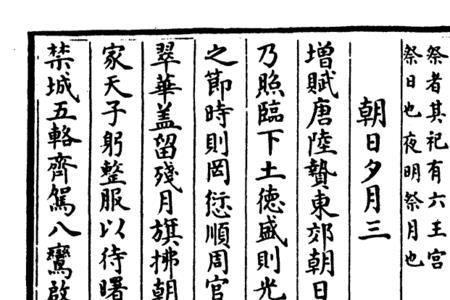 祭者其祀有六王宫
祭日也夜明祭月也
朝日夕月三
増賦唐陸贄東郊朝日
乃照臨下土德盛則光
之節時則罔愆順周官
翠華盖留殘月旗拂朝
家天子躬整服以待曙
禁城五輅齊駕八鸞啟